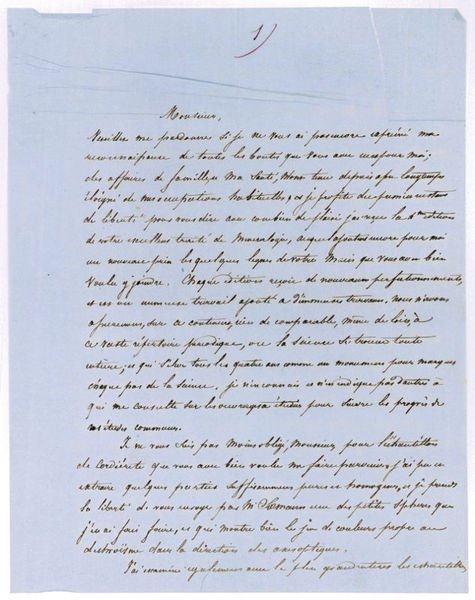 1)
Monsieur,
Veuillez me pardonner si je ne vous ai pas encore exprimé ma
reconnaissance de toutes les bontés que vous avez eues pour moi;
des affaires de famille, ma santé, m'ont tenu depuis longtemps
éloigné de mes occupations habituelles, et je profite du premier instant
de liberté pour vous dire avec combien de plaisir j'ai reçu la édition
de votre excellent traité de Mineralogie, auquel ajoutait encore pour moi
un nouveau prix les quelques lignes de votre main que vous avez bien
voulu y joindre. Chaque édition reçoit de nouveaux perfectionnements,
et est un immense travail ajouté à d'immenses travaux. Nous n'avons
sur ce continent, rien de comparable, même de loin, à
ce vaste répertoire périodique, où la science se trouve toute
entière, et qui s'élève tous les quatre ans comme un monument pour marquer
chaque pas de la Science. Je n'en connais et n'en indique pas d'autre à
qui me consulte sur les ouvrages à étudier pour suivre les progrès de
nos études communes.
Je ne vous suis pas moins obligé, Monsieur, pour l'échantillon
de Cordiérite que vous avez bien voulu me faire parvenir, j'ai pu en
extraire quelques parties suffisamment pures et homogènes, et je prends
la liberté de vous envoyer par Mr Sæmann une des petites sphères que
j'en ai fait faire, et qui montre bien le jeu de couleurs propre au
dichroïsme dans la direction des axes optiques.
J'ai examiné également avec le plus grand intérêt les échantillons